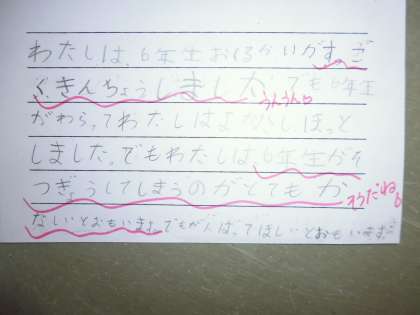 わたしは、6年生おくるかいがすご
く、きんちょうしました。でも6年生
がわらってわたしはよかっし、ほっと
しました。でもわたしは6年生がそ
つぎょうしてしまうのがとてもか
なしいとおもいます。でもがんばってほしいとおもいます。
うんうん
そうだね